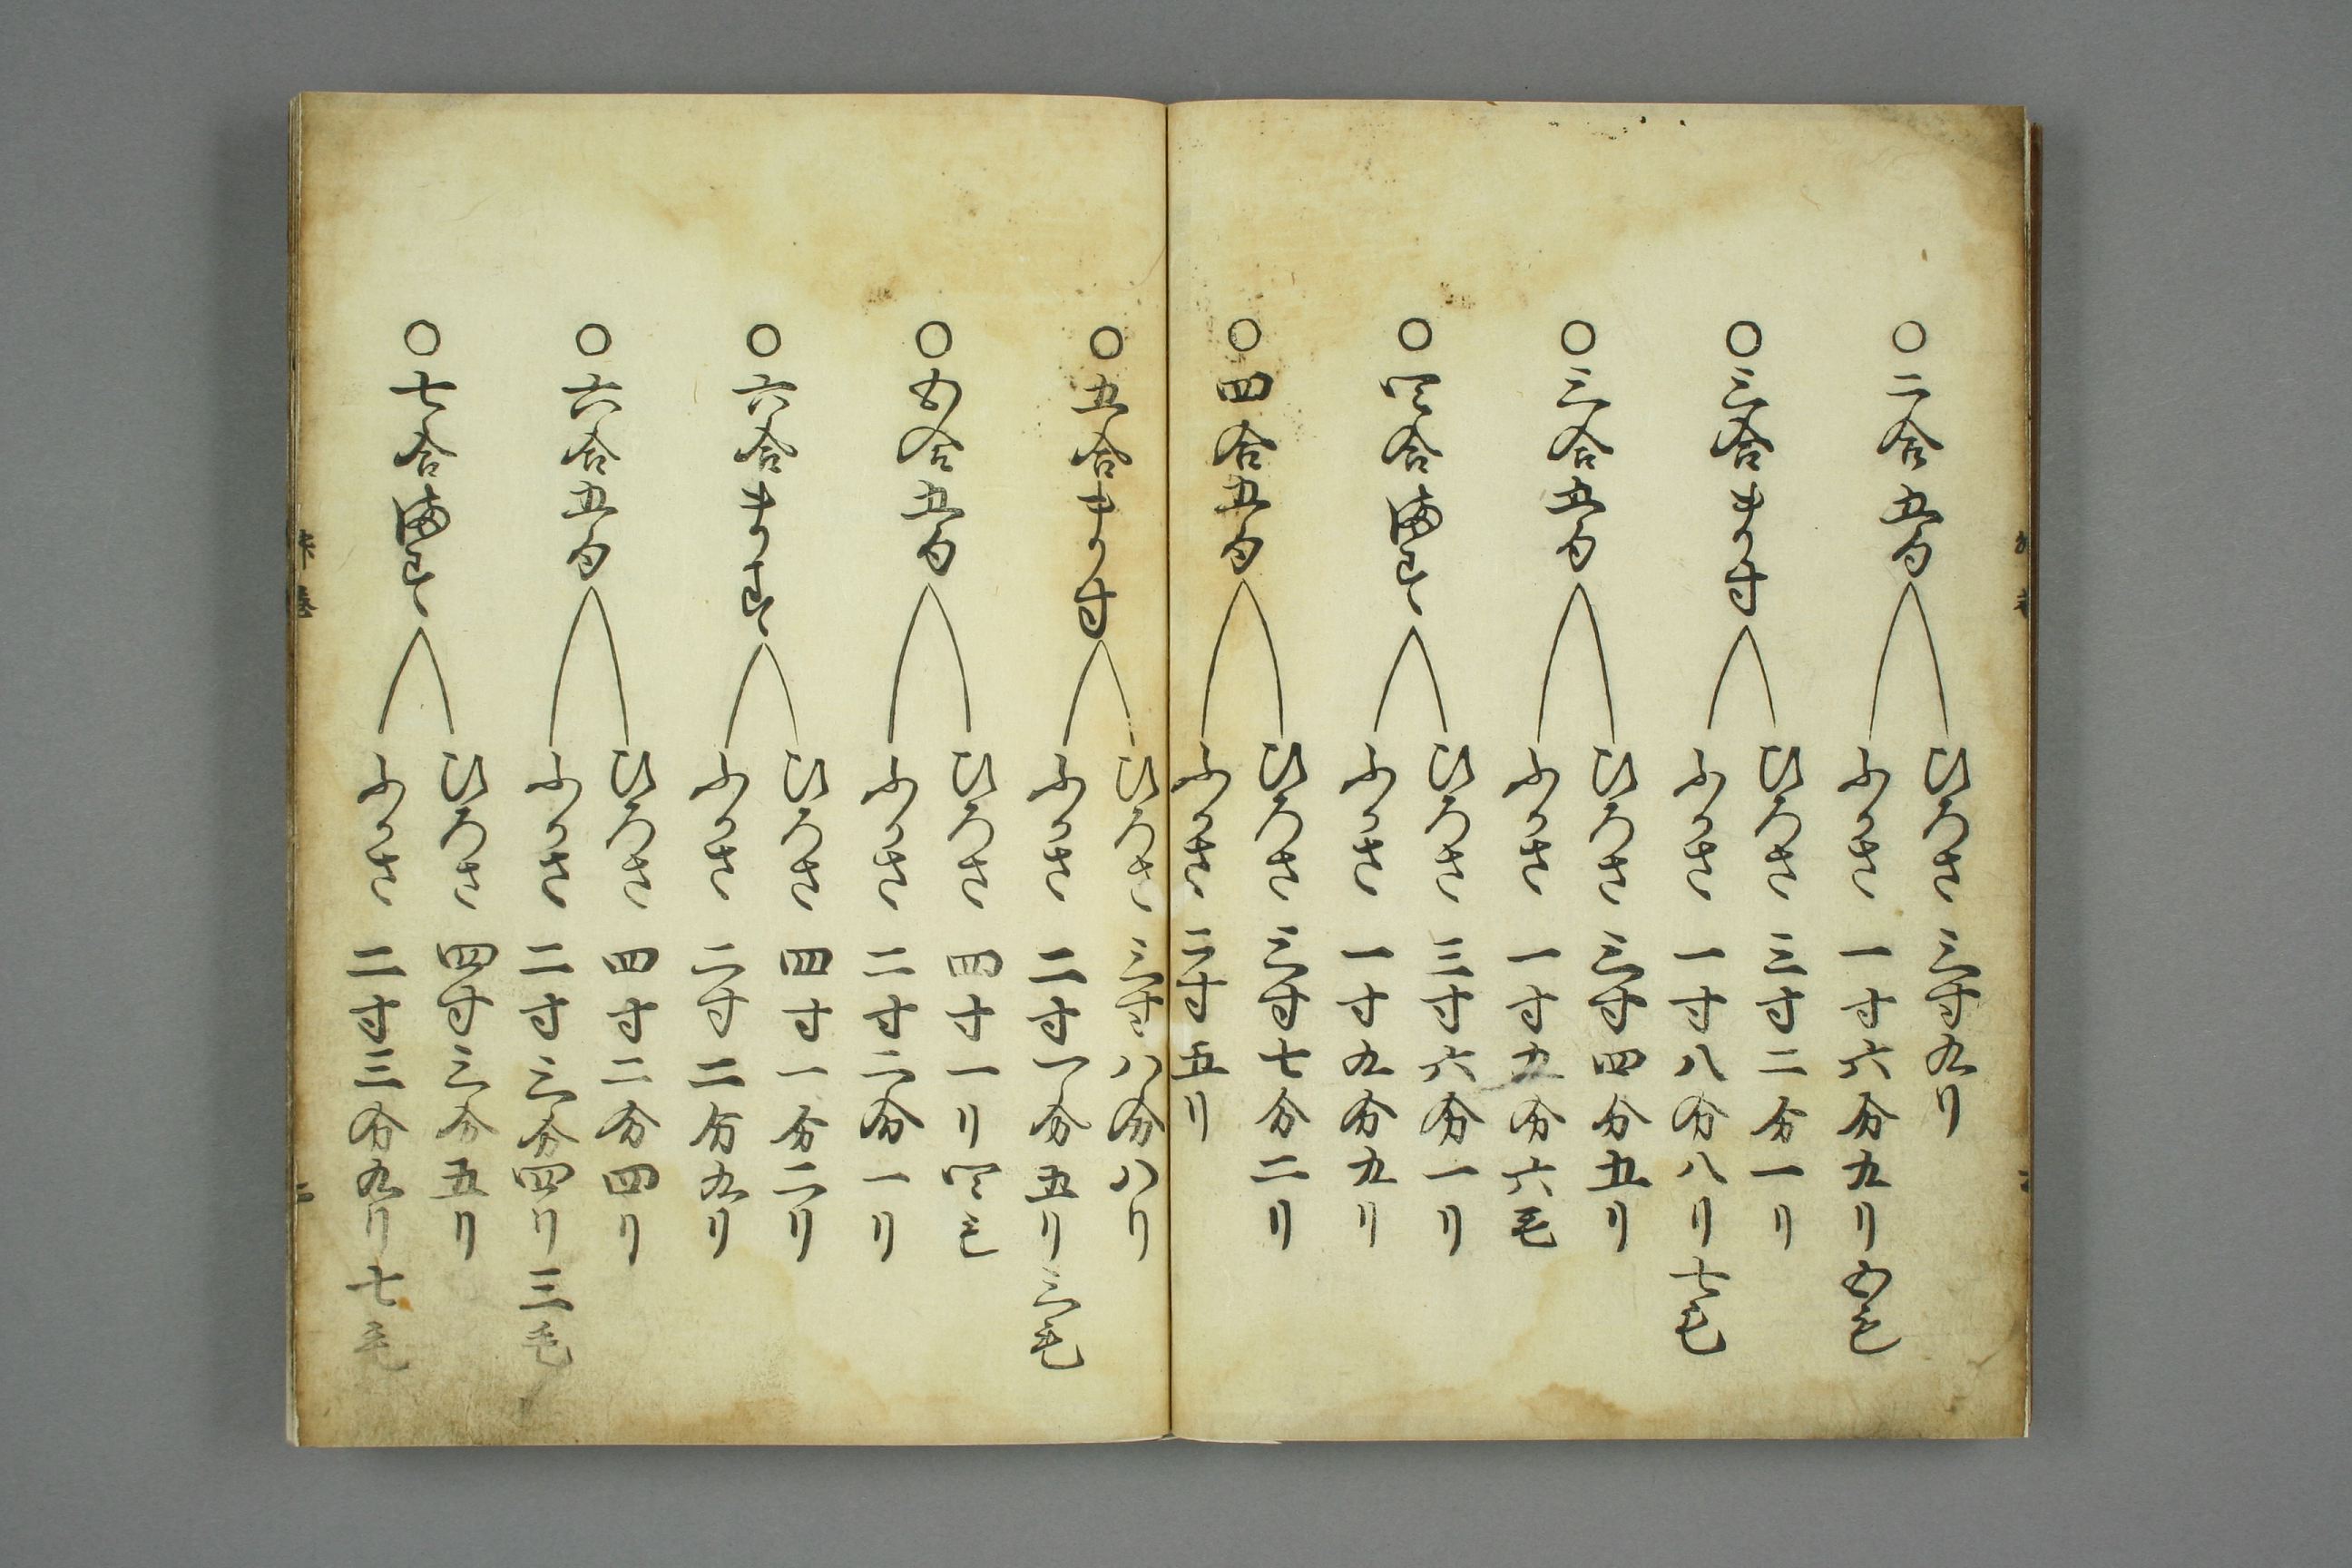 ○二合五勺
ひろさ 三寸九リ
ふかさ 一寸六分九リ五毛
○三合ます
ひろさ 三寸二分一リ
ふかさ 一寸八分八リ七毛
○三合五勺
ひろさ 三寸四分五リ
ふかさ 一寸九分六毛
○四合ます
ひろさ 三寸六分一リ
ふかさ 一寸九分九リ
○四合五勺
ひろさ 三寸七分二リ
ふかさ 二寸五リ
○五合ます
ひろさ 三寸八分八リ
ふかさ 二寸一分五リ三毛
○五合五勺
ひろさ 四寸一リ四毛
ふかさ 二寸二分一リ
○六合ます
ひろさ 四寸一分二リ
ふかさ 二寸二分九リ
○六合五勺
ひろさ 四寸二分四リ
ふかさ 二寸三分四リ三毛
○七合ます
ひろさ 四寸三分五リ
ふかさ 二寸三分九リ七毛